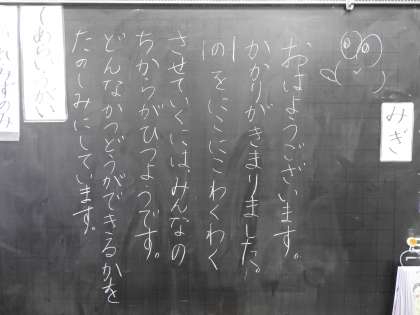 みぎ
おはようございます。
かかりがきまりました。
1の1をにこにこわくわく
させていくには、みんなの
ちからがひつようです。
どんなかつどうができるかを
たのしみにしています。
あらいうがい
みずのみ